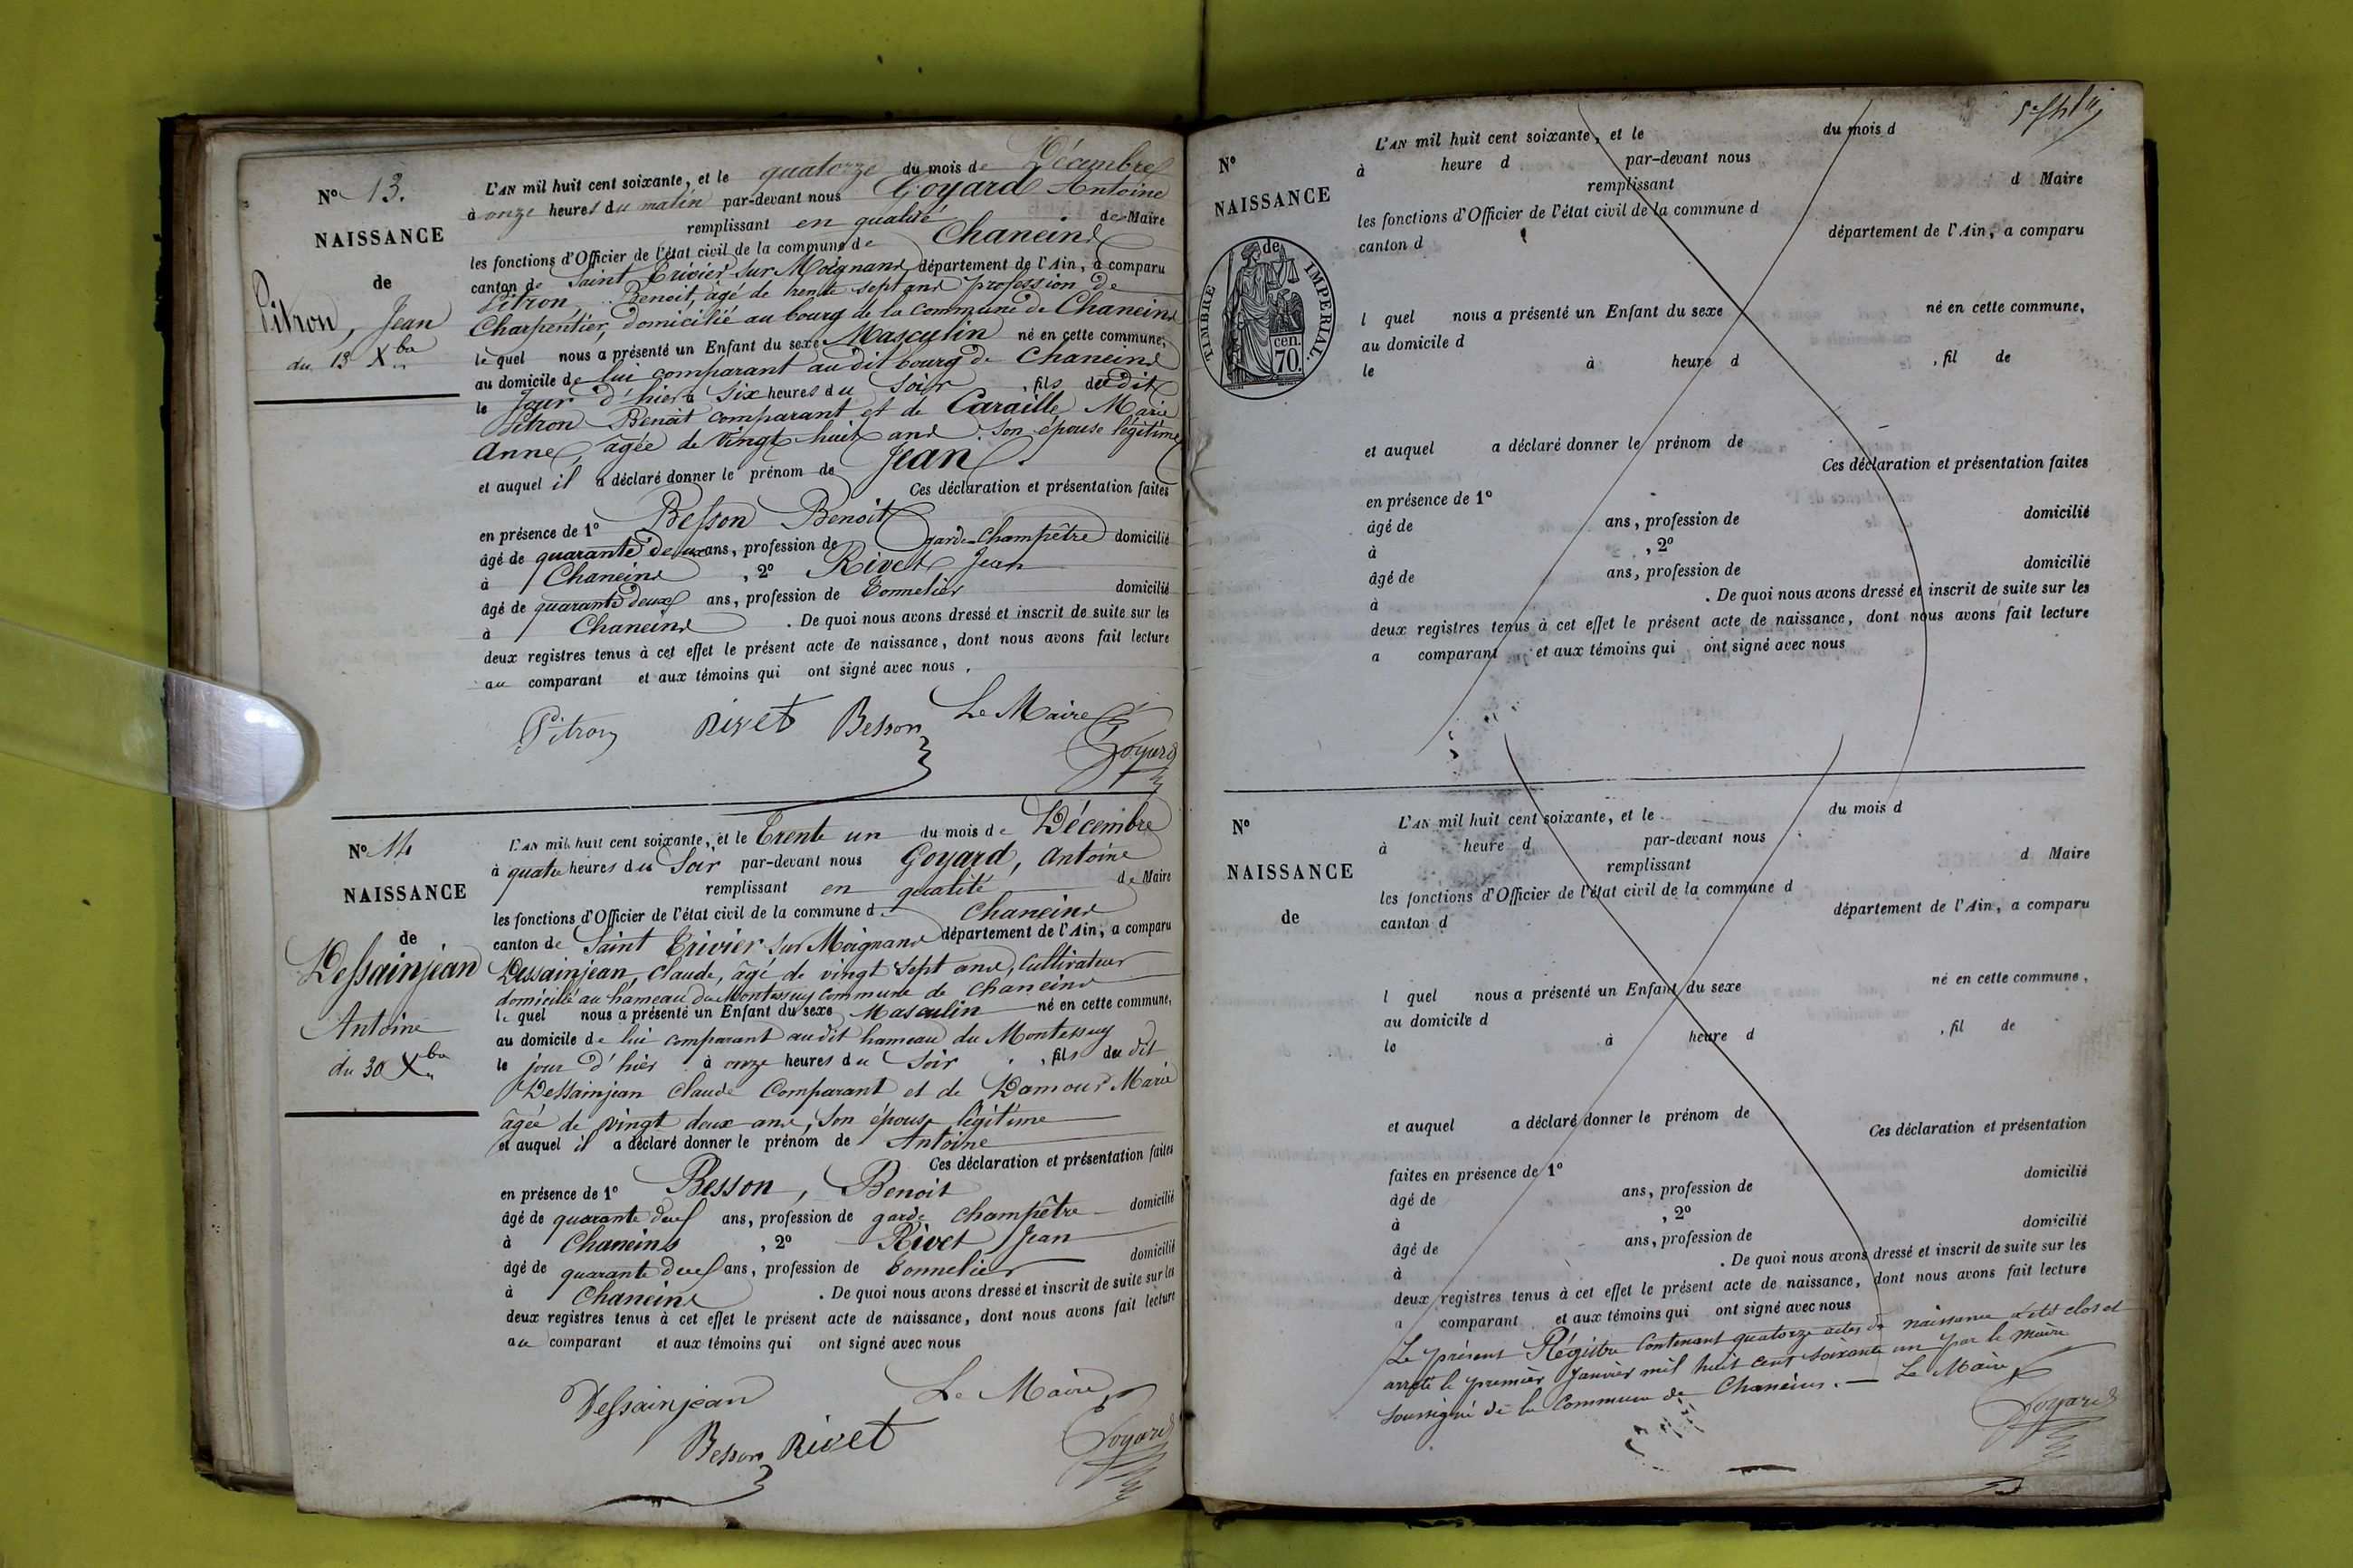 N° 13.
NAISSANCE
de
Pitron, Jean
du 13 Xbre
L'AN mil huit cent soixante, et le quatorze du mois de Décembre
à onze heures du matin par-devant nous Goyard Antoine
remplissant en qualité de Maire
les fonctions d'Officier de l'état civil de la commune de Chaneins
canton de Saint Trivier sur Moignans département de l'Ain, a comparu
Pitron Benoit, âgé de trente sept ans profession de
Charpentier, domicilié au bourg de la commune de Chaneins
lequel nous a présenté un Enfant du sexe Masculin né en cette commune,
au domicile de lui comparant au dit bourg de Chaneins
le jour d'hier à six heures du soir, fils du dit
Pitron Benoit comparant et de Caraille Marie
Anne, âgée de vingt huit ans son épouse légitime
et auquel il a déclaré donner le prénom de Jean.
Ces déclaration et présentation faites
en présence de 1° Besson Benoit
âgé de quarante deux ans, profession de garde-Champêtre domicilié
à Chaneins, 2° Rivet Jean
âgé de quarante deux ans, profession de Tonnelier domicilié
à Chaneins. De quoi nous avons dressé et inscrit de suite sur les
deux registres tenus à cet effet le présent acte de naissance, dont nous avons fait lecture
au comparant et aux témoins qui ont signé avec nous.
Pitron Rivet Besson Le Maire
Goyard
N° 14
NAISSANCE
de
Dessainjean
Antoine
du 30 Xbre
L'AN mil huit cent soixante, et le Trente un du mois de Décembre
à quatre heures du Soir par-devant nous Goyard, Antoine
remplissant en qualité de Maire
les fonctions d'Officier de l'état civil de la commune de Chaneins
canton de Saint Trivier sur Moignans département de l'Ain, a comparu
Dessainjean, Claude, âgé de vingt sept ans, Cultivateur
domicilié au hameau du Montessuy commune de Chaneins
lequel nous a présenté un Enfant du sexe Masculin né en cette commune,
au domicile de lui comparant au dit hameau du Montessuy
le jour d'hier à onze heures du Soir, fils du dit
Dessainjean Claude Comparant et de Damour Marie
âgée de vingt deux ans, son épouse légitime
et auquel il a déclaré donner le prénom de Antoine
Ces déclaration et présentation faites
en présence de 1° Besson, Benoit
âgé de quarante deux ans, profession de garde champêtre domicilié
à Chaneins, 2° Rivet Jean
âgé de quarante deux ans, profession de Tonnelier domicilié
à Chaneins. De quoi nous avons dressé et inscrit de suite sur les
deux registres tenus à cet effet le présent acte de naissance, dont nous avons fait lecture
au comparant et aux témoins qui ont signé avec nous
Dessainjean Le Maire
Besson Rivet Goyard
N°
NAISSANCE
TIMBRE IMPERIAL.
de
cen.
70.
L'AN mil huit cent soixante, et le du mois d
à heure d par-devant nous
remplissant d Maire
les fonctions d'Officier de l'état civil de la commune d
canton d département de l'Ain, a comparu
l quel nous a présenté un Enfant du sexe né en cette commune,
au domicile d
le à heure d , fil de
et auquel a déclaré donner le prénom de
Ces déclaration et présentation faites
en présence de 1°
âgé de ans, profession de domicilié
à , 2°
âgé de ans, profession de domicilié
à . De quoi nous avons dressé et inscrit de suite sur les
deux registres tenus à cet effet le présent acte de naissance, dont nous avons fait lecture
a comparant et aux témoins qui ont signé avec nous
N°
NAISSANCE
de
L'AN mil huit cent soixante, et le du mois d
à heure d par-devant nous
remplissant d Maire
les fonctions d'Officier de l'état civil de la commune d
canton d département de l'Ain, a comparu
l quel nous a présenté un Enfant du sexe né en cette commune,
au domicile d
le à heure d , fil de
et auquel a déclaré donner le prénom de
Ces déclaration et présentation
faites en présence de 1°
âgé de ans, profession de domicilié
à , 2°
âgé de ans, profession de domicilié
à . De quoi nous avons dressé et inscrit de suite sur les
deux registres tenus à cet effet le présent acte de naissance, dont nous avons fait lecture
a comparant et aux témoins qui ont signé avec nous
Le présent Régistre Contenant quatorze actes de naissance a été clos et
arrêté le premier Janvier mil huit cent soixante un par le Maire
soussigné de la Commune de Chaneins. — Le Maire
Goyard